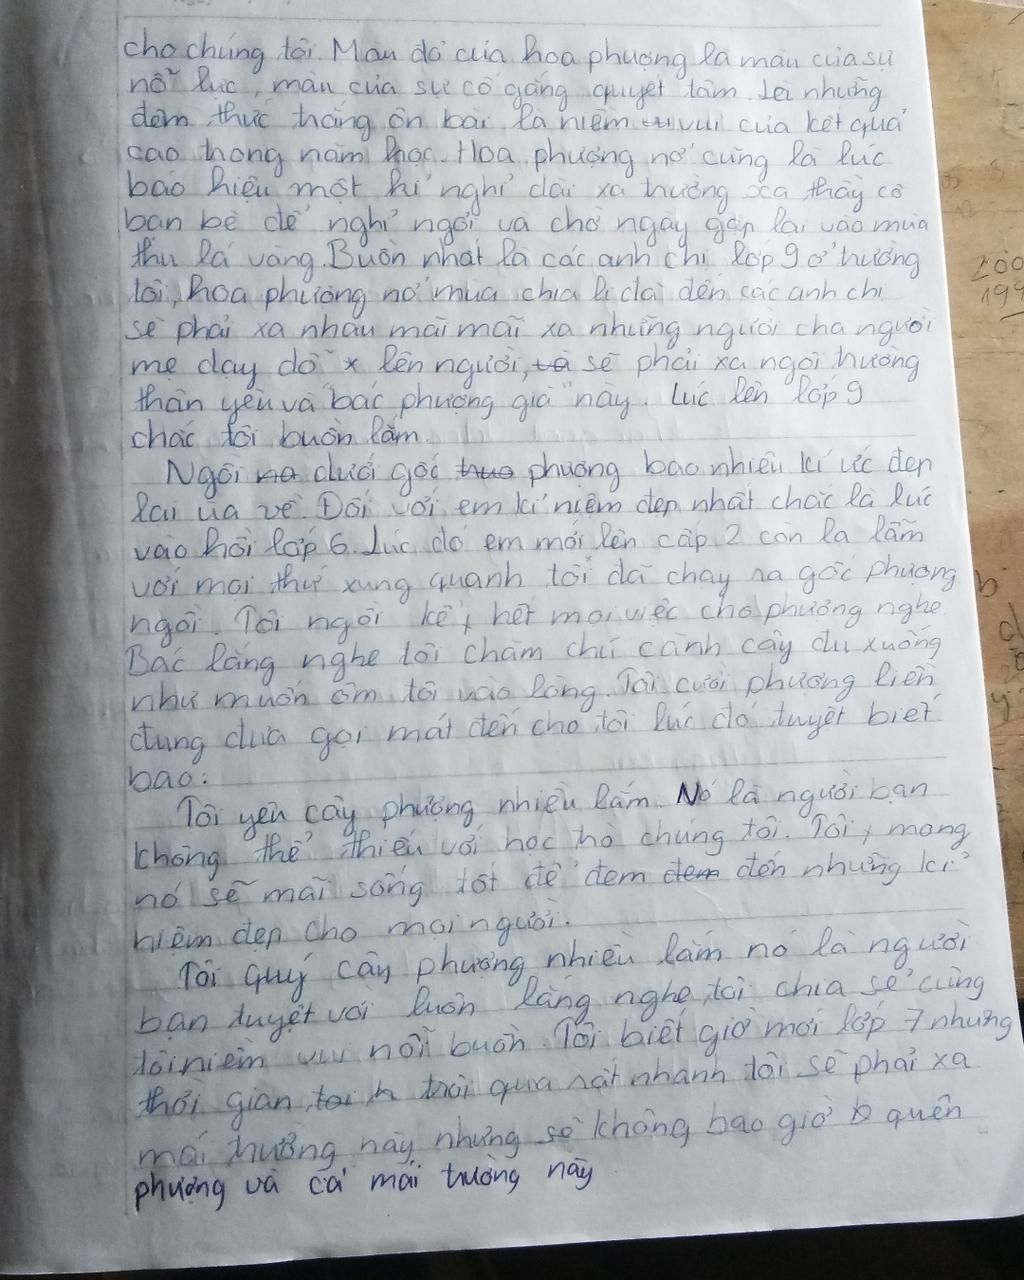 cho chúng tôi Màu đỏ của hoa phượng là màu của sự
nỗ lực, màu của sự cố gắng quyết tâm. Là những
đêm thức trắng ôn bài là niềm vui của kết quả
cao trong năm học. Hoa phượng nở cũng là lúc
báo hiệu một kì nghỉ dài xa trường xa thầy cô
bạn bè để nghỉ ngơi và chờ ngày gặp lại vào mùa
thu lá vàng. Buồn nhất là các anh chị lớp 9 ở trường
tôi, hoa phượng nở mùa chia li đến các anh chị
sẽ phải xa nhau mãi mãi xa những người cha người
mẹ dạy dỗ lên người, sẽ phải xa ngôi trường
thân yêu và "bác phượng già" này. Lúc lên lớp 9
chắc tôi buồn lắm.
Ngồi dưới gốc phượng bao nhiêu kí ức đẹp
lại ùa về. Đối với em kỉ niệm đẹp nhất chắc là lúc
vào hồi lớp 6. Lúc đó em mới lên cấp 2 còn lạ lẫm
với mọi thứ xung quanh tôi đã chạy ra gốc phượng
ngồi. Tôi ngồi kể hết mọi việc cho phượng nghe.
Bác lắng nghe tôi chăm chú cành cây đu xuống
như muốn ôm tôi vào lòng. Tôi cười phượng liền
đung đưa gọi mát đến cho tôi lúc đó tuyệt biết
bao.
Tôi yêu cây phượng nhiều lắm. Nó là người bạn
không thể thiếu với học trò chúng tôi. Tôi mong
nó sẽ mãi sống tốt để đem đến những kỉ
niệm đẹp cho mọi người.
Tôi quý cây phượng nhiều lắm nó là người
bạn tuyệt vời luôn lắng nghe tôi chia sẻ cùng
tôi niềm vui nỗi buồn. Tôi biết giờ mới lớp 7 nhưng
thời gian trôi qua rất nhanh tôi sẽ phải xa
mái trường này nhưng sẽ không bao giờ quên
phượng và cả mái trường này